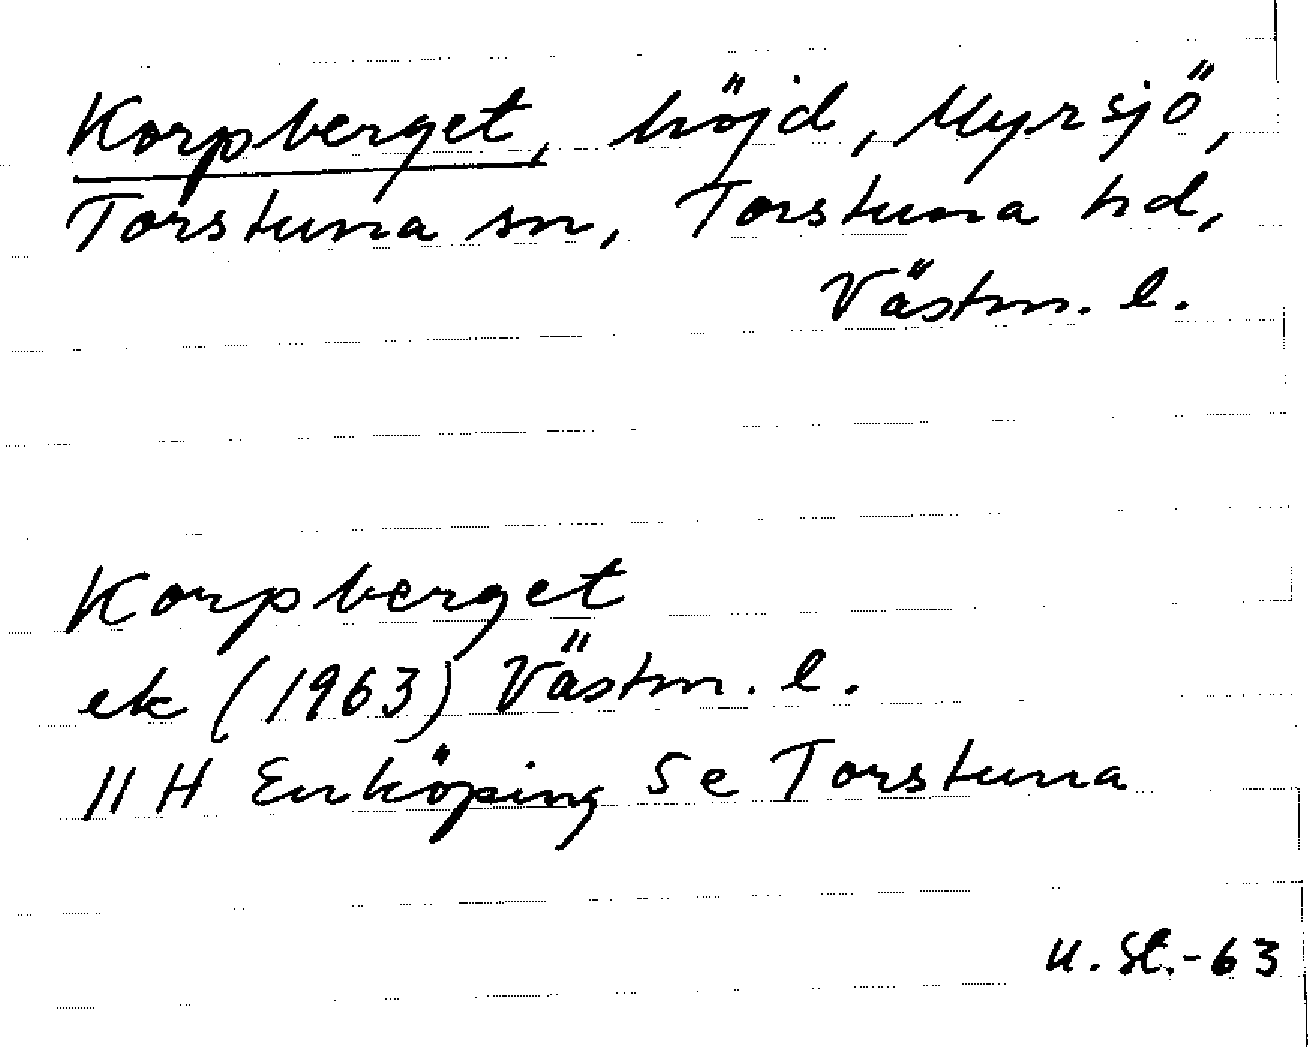 Korpberget, höjd, Myrsjö,
Torstuna sn, Torstuna hd,
Västm. l.
Korpberget
ek (1963) Västm. l.
11 H Enköping 5e Torstuna
U. St.-63